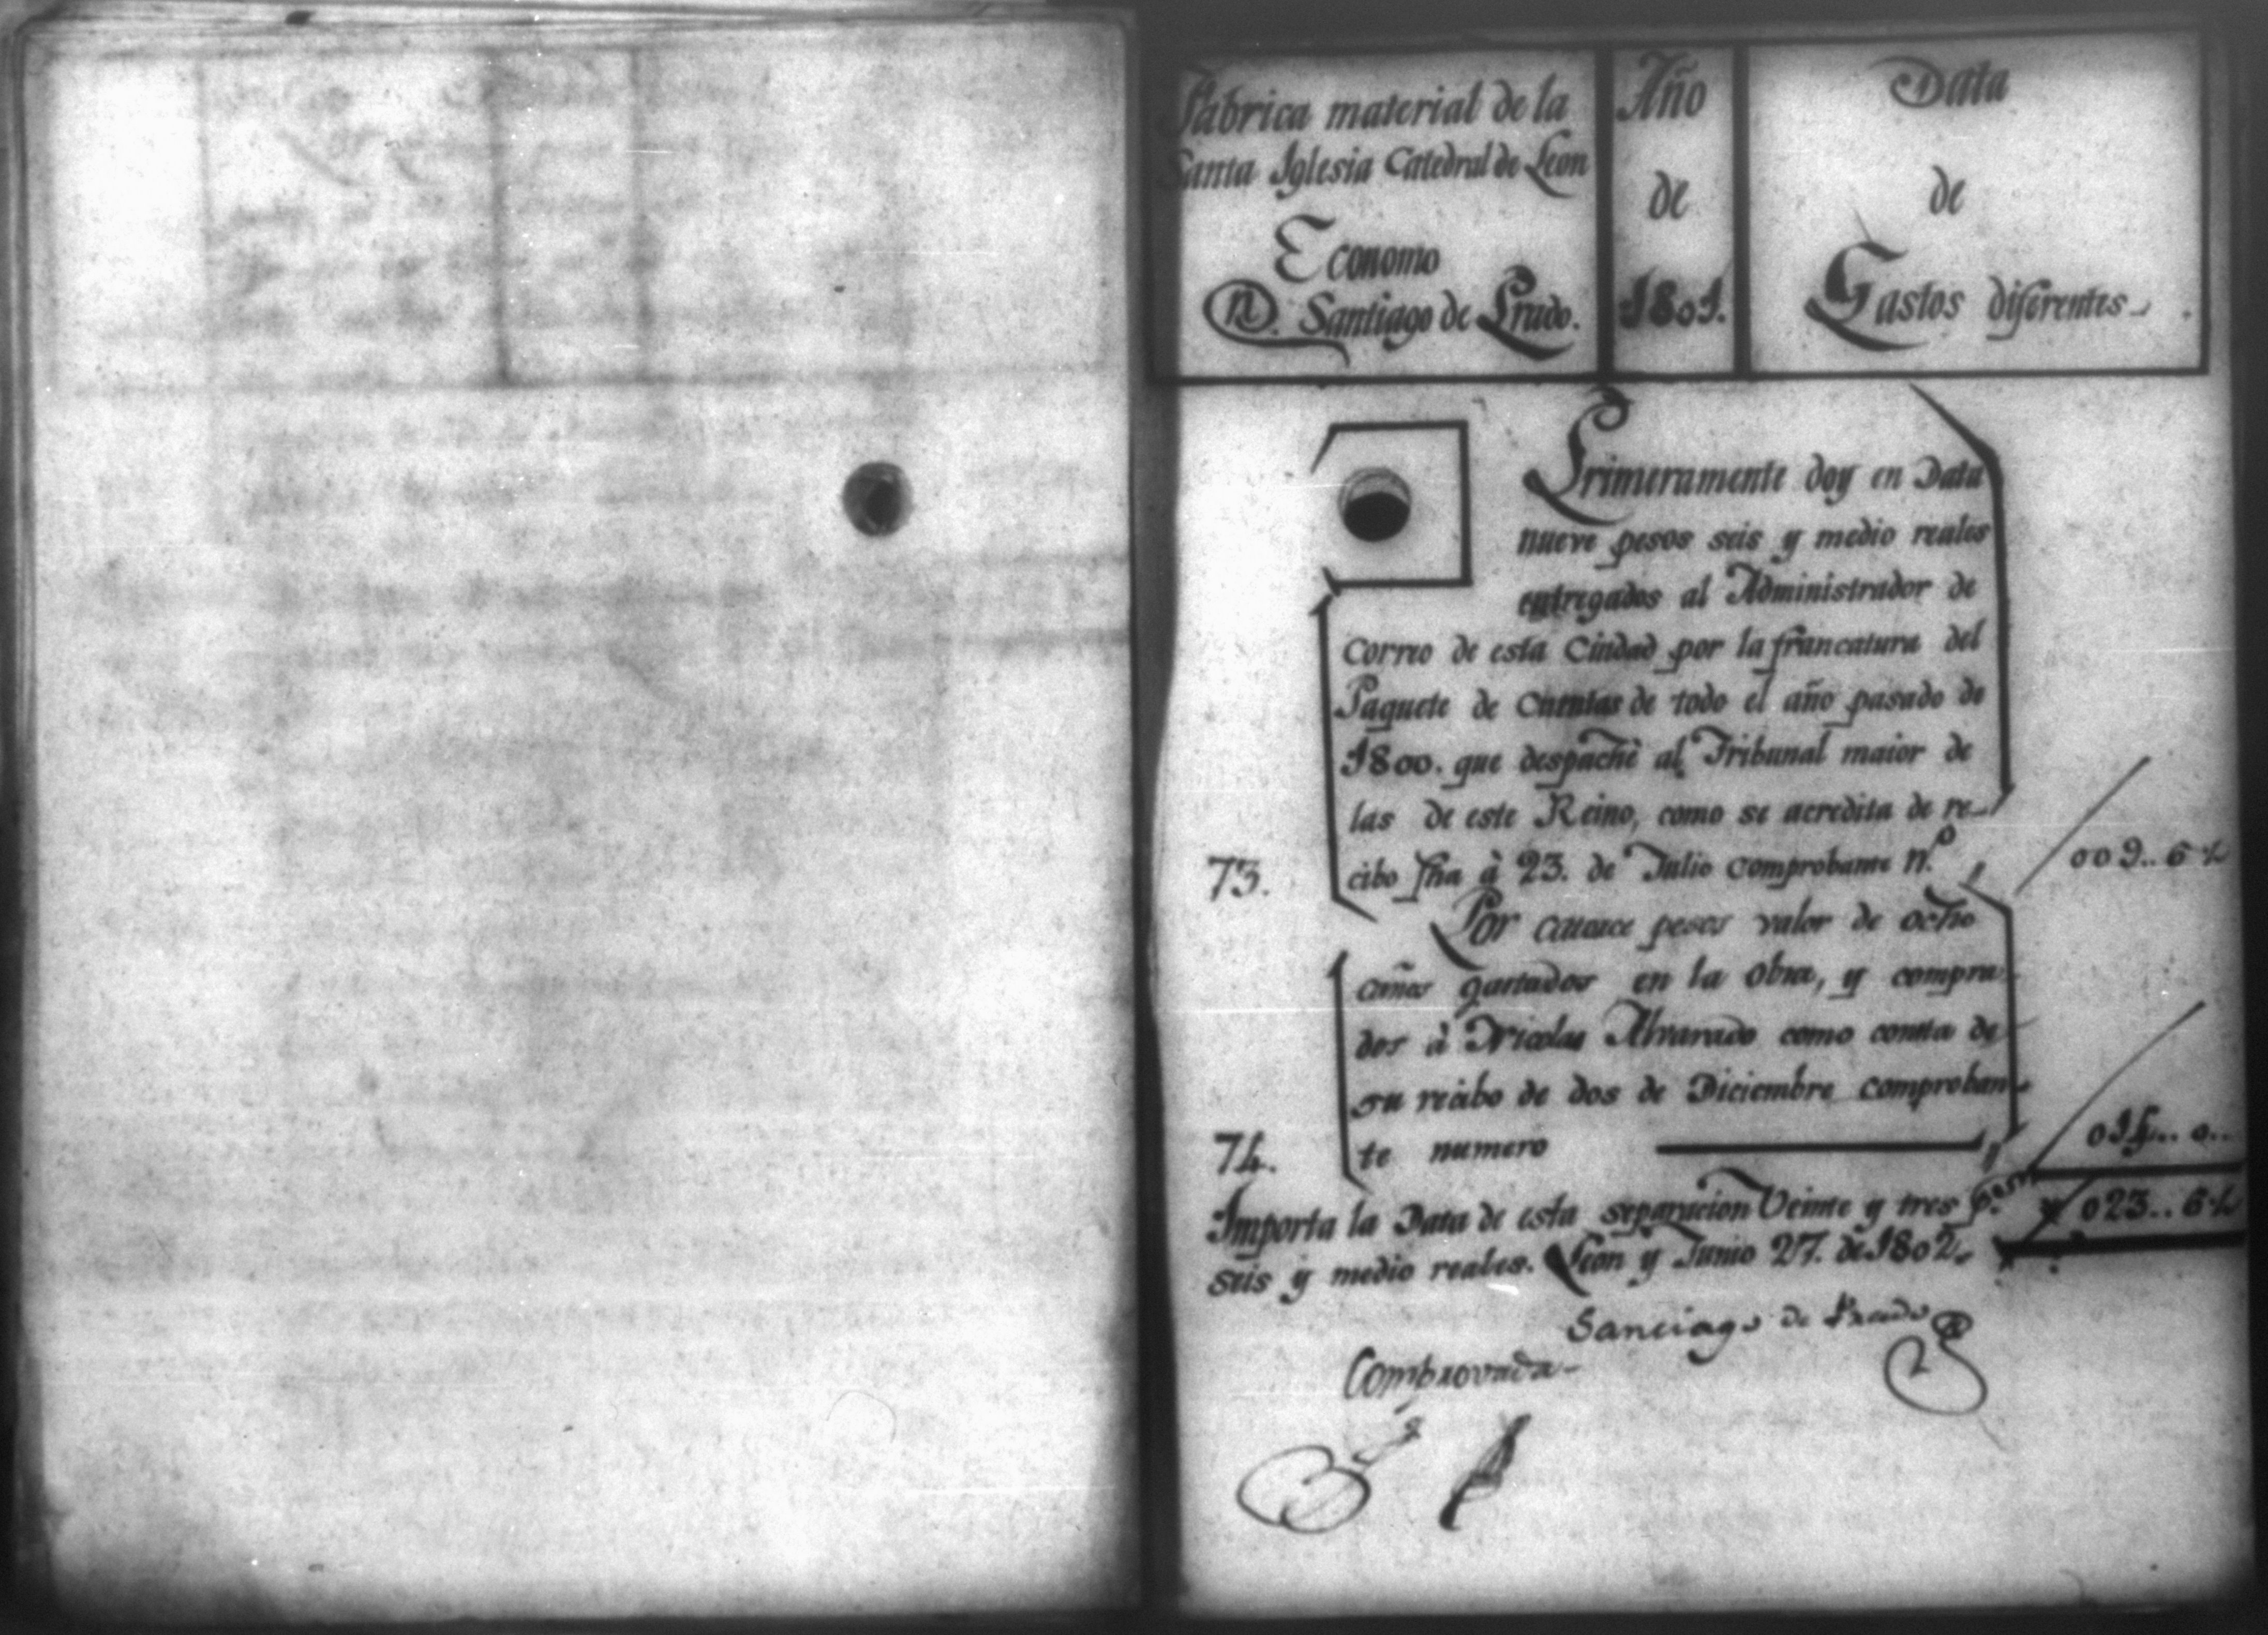 Fabrica material de la
Santa Iglesia Catedral de Leon
Economo
D.n Santiago de Prado.
Año
de
1801.
Data
de
Gastos diferentes
Primeramente doy en Data
nueve pesos seis y medio reales
entregados al Administrador de
Correo de esta Ciudad por la francatura del
Paquete de Cuentas de todo el año pasado de
1800. que despachè al Tribunal maior de
las de este Reino, como se acredita de re-
73. cibo fha à 23. de Julio comprobante N.º 009.. 6 ½
Por catorce pesos valor de ocho
gastados en la obra, y compra
dos à Nicolas Alvarado como consta de
su recibo de dos de Diciembre comproban-
74. te numero 014.. 0..
Importa la Data de esta separacion Veinte y tres pesos 023.. 6 ½
seis y medio reales. Leon y Junio 27. de 1802.
Santiago de Prado
Comprovada-